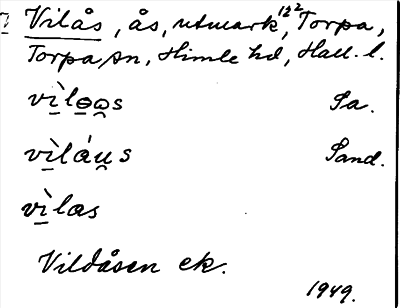 Vilås, ås, utmark 122, Torpa,
Torpa sn, Himle hd, Hall. l.
vìlɵa̯s Pa.
vìláu̯s Sand.
vìlas
Vildåsen ek.
1949.